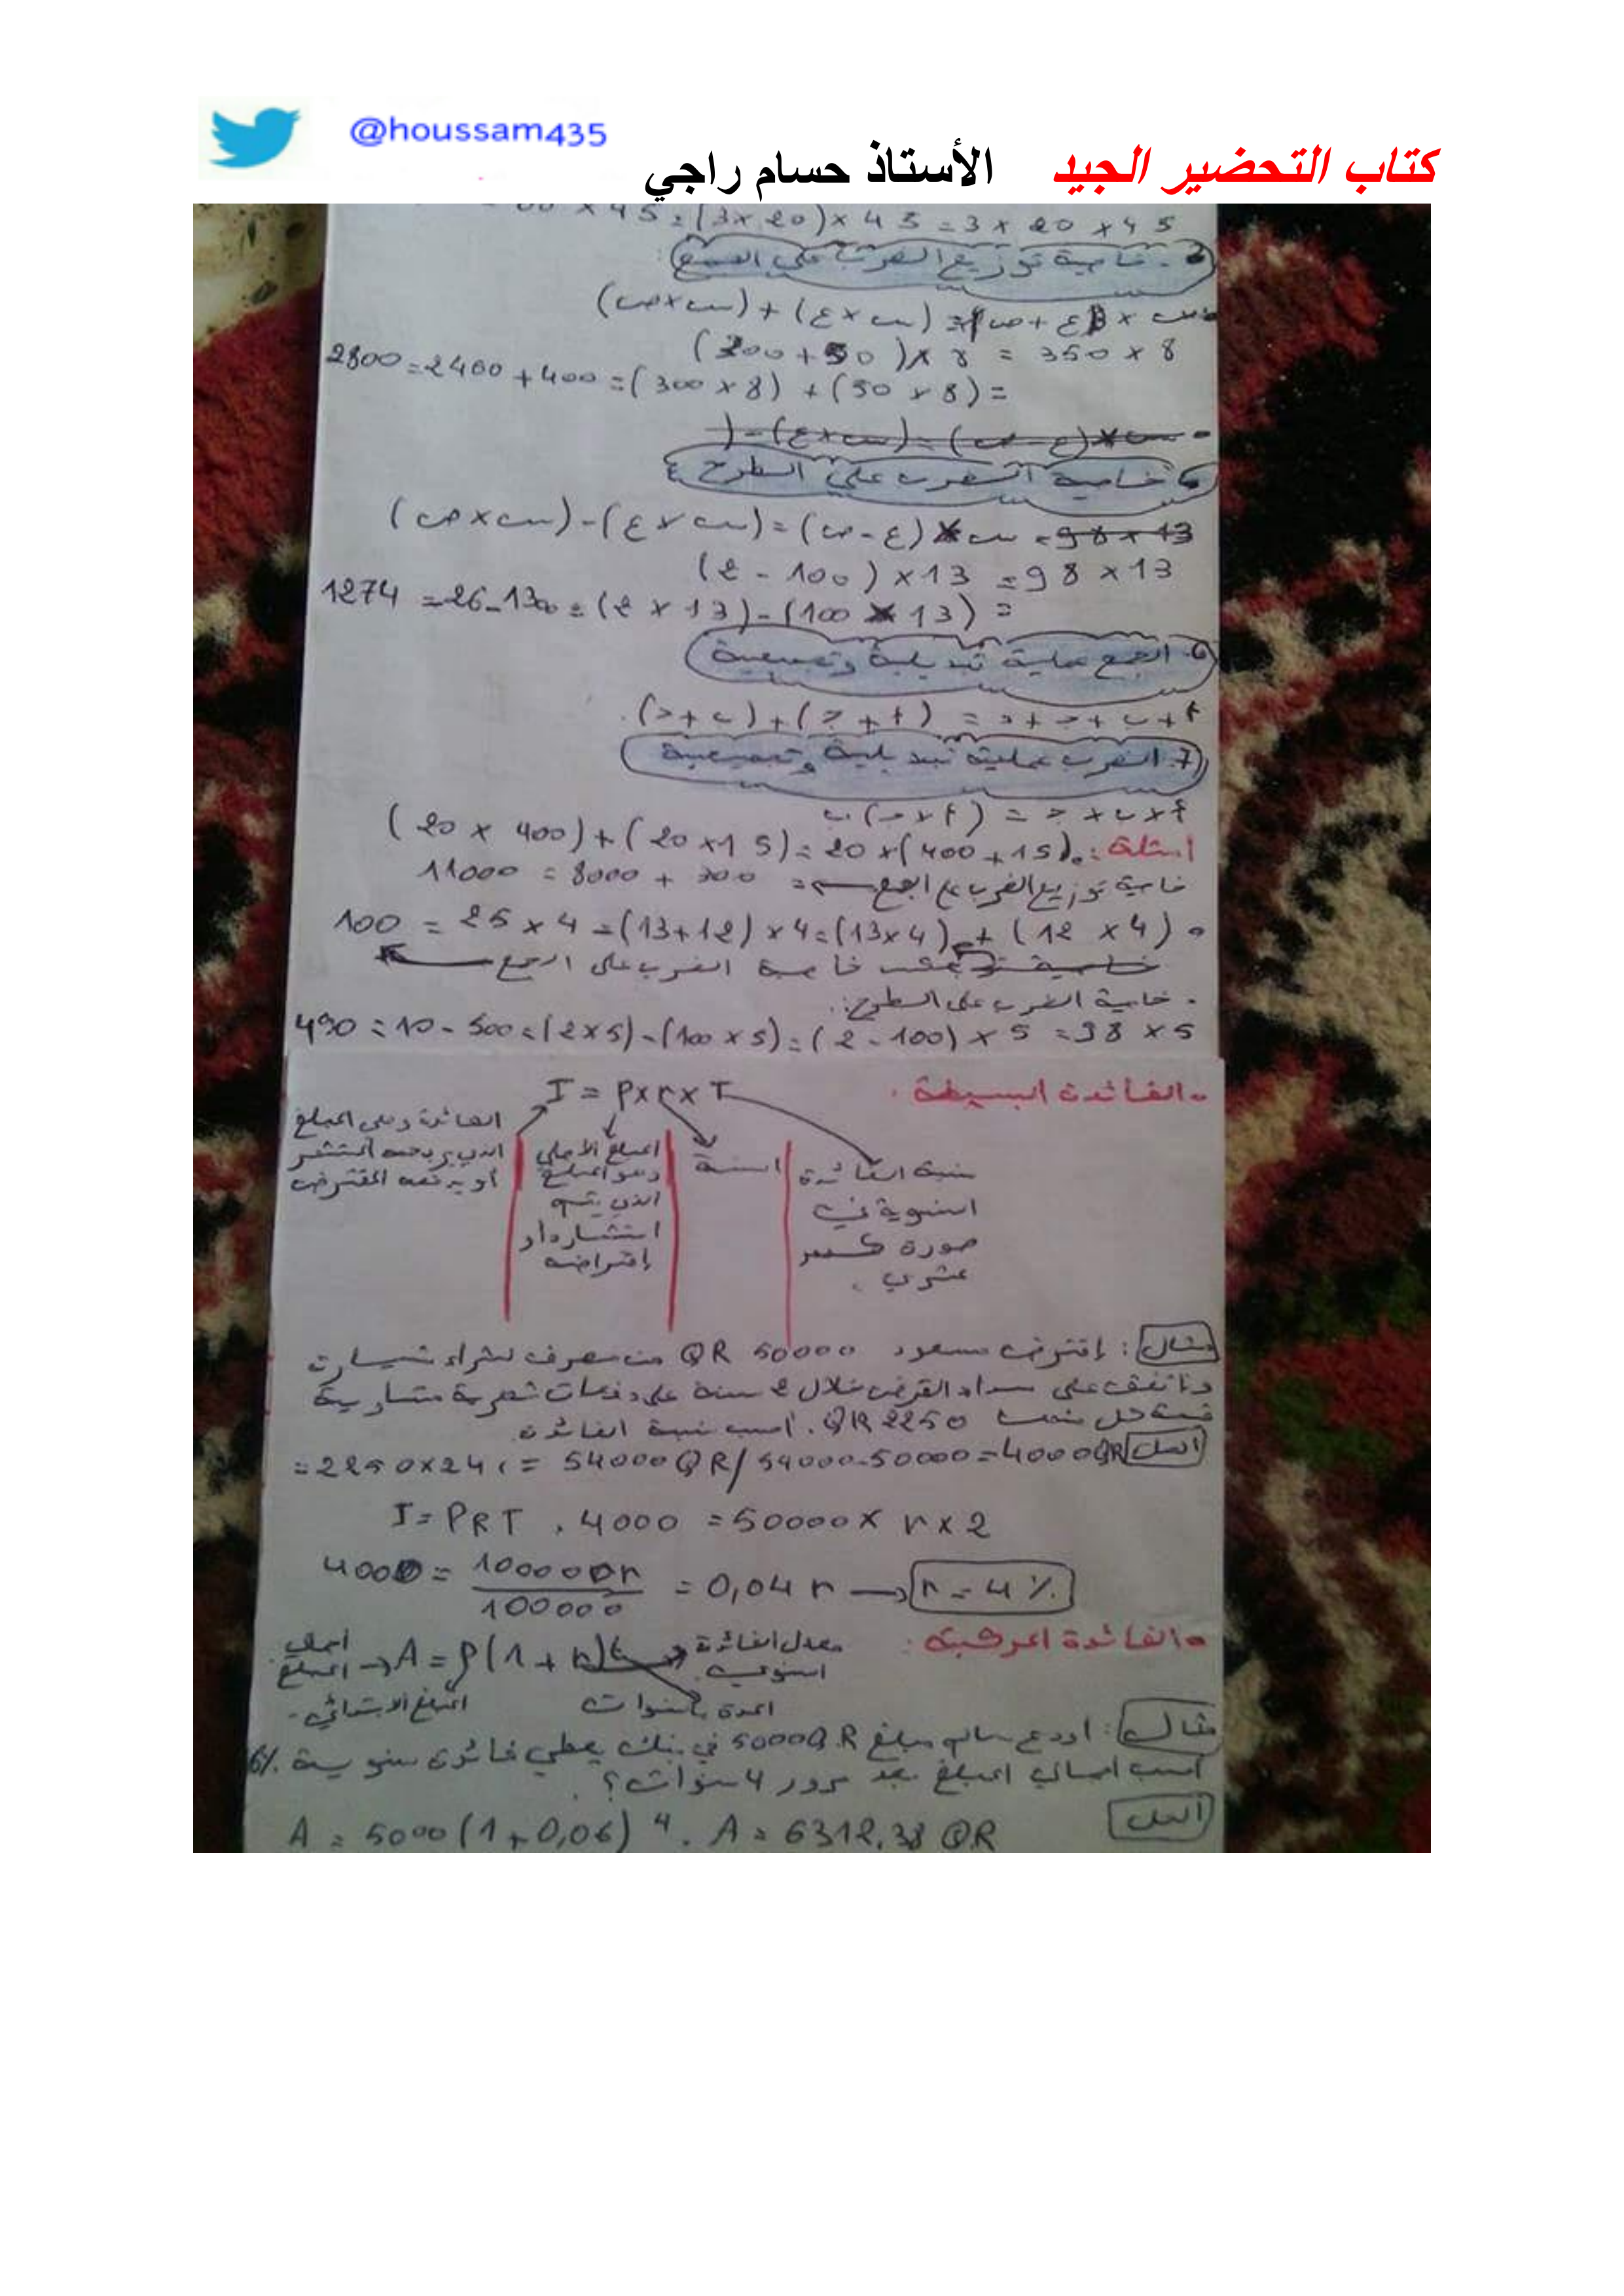 @houssam435
كتاب التحضير الجيد الأستاذ حسام راجي
45 × 20 × 3 = 45 × (20 × 3) = 45 ×
خاصية توزيع الضرب على الجمع
س × (ع + ص) = (س × ع) + (س × ص)
8 × 350 = 8 × (50 + 300)
= (8 × 50) + (8 × 300) = 400 + 2400 = 2800
خاصية الضرب على الطرح
س × (ع - ص) = (س × ع) - (س × ص)
13 × 98 = 13 × (100 - 2)
= (13 × 100) - (13 × 2) = 1300 - 26 = 1274
6. الجمع عملية تبديلية وتجميعية
أ + ب + ج + د = (أ + ج) + (ب + د).
7. الضرب عملية تبديلية وتجميعية
أ × ب × ج = (أ × ج) ب
أمثلة: (15 + 400) × 20 = (15 × 20) + (400 × 20)
خاصية توزيع الضرب على الجمع = 300 + 8000 = 11000
(4 × 12) + (4 × 13) = 4 × (12 + 13) = 4 × 25 = 100
عكس خاصية الضرب على الجمع
. خاصية الضرب على الطرح:
5 × 98 = 5 × (100 - 2) = (5 × 100) - (5 × 2) = 500 - 10 = 490
الفائدة البسيطة.
I = P × r × T
الفائدة وهي المبلغ
الذي يربحه المستثمر
أو يدفعه المقترض
المبلغ الأصلي
وهو المبلغ
الذي يتم
استثماره أو
إقتراضه
السنة
نسبة الفائدة
السنوية في
صورة كسر
عشري.
مثال: إقترض مسعود 50000 QR من مصرف لشراء سيارة
واتفق على سداد القرض خلال 2 سنة على دفعات شهرية متساوية
قيمة كل منها 2250 QR. احسب نسبة الفائدة.
الحل
= 2250×24, = 54000 QR / 54000-50000 = 4000 QR
I = PRT , 4000 = 50000 × r × 2
4000 = 100000r / 100000 = 0,04 r → r = 4 %
الفائدة المركبة:
A = P(1 + r)t
معدل الفائدة
السنوي
المبلغ الابتدائي
المدة بالسنوات
مثال: أودع سالم مبلغ 5000 QR في بنك يعطي فائدة سنوية 6%
احسب اجمالي المبلغ بعد مرور 4 سنوات؟
الحل
A = 5000 (1 + 0,06) 4 . A = 6312,38 QR